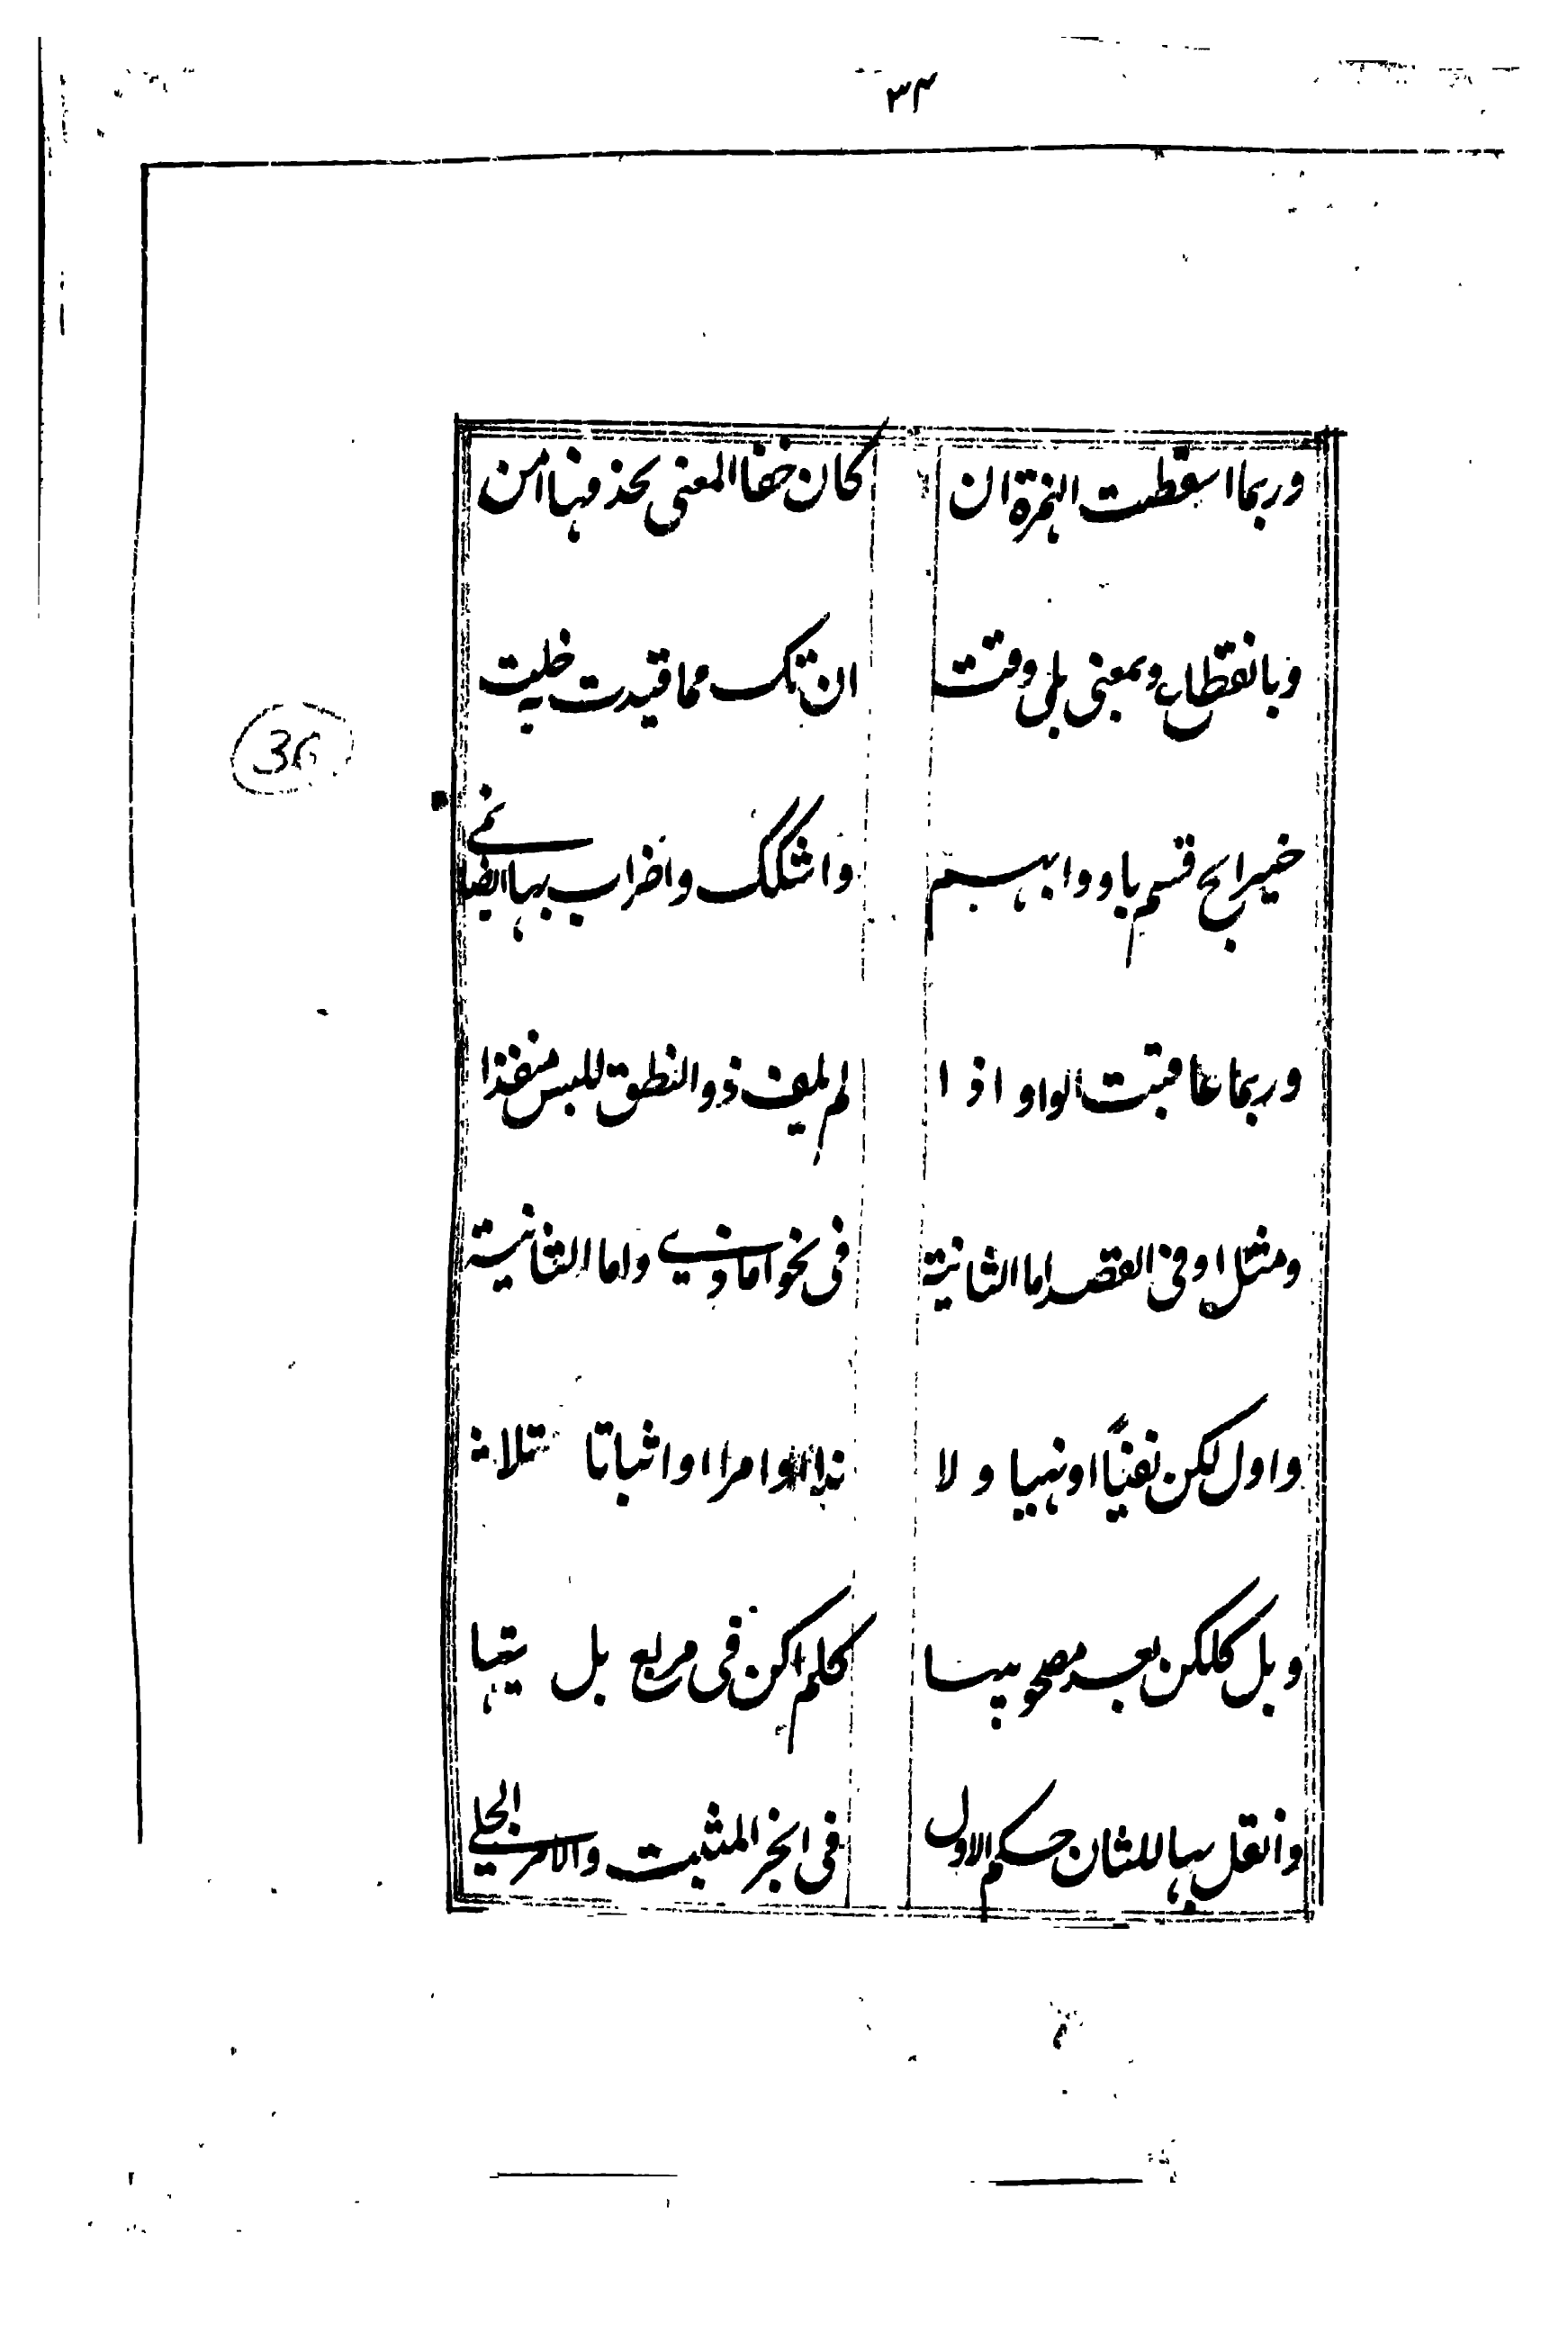 ٣٤
وربما اسقطت الهمزة ان كان خفا المعنى بحذفها امن
وبانقطاع وبمعنى بل وفت ان تك مما قيدت به خلت
خير ابح قسم باو وابهم واشكك واضراب بها ايضا نمى
وربما عاقبت الواو اذا لم يلف ذو النطق للبس منفذا
ومثل او في القصد اما الثانية في نحو اما ذي واما النائية
واول لكن نفيًا او نهيا ولا نداا وامرا او اثباتا تلا
36
وبل كلكن بعد مصحوبيها كلم اكن في مربع بل يتها
وانقل بها للثان حكم الاول في الخبر المثبت والامر الجلي